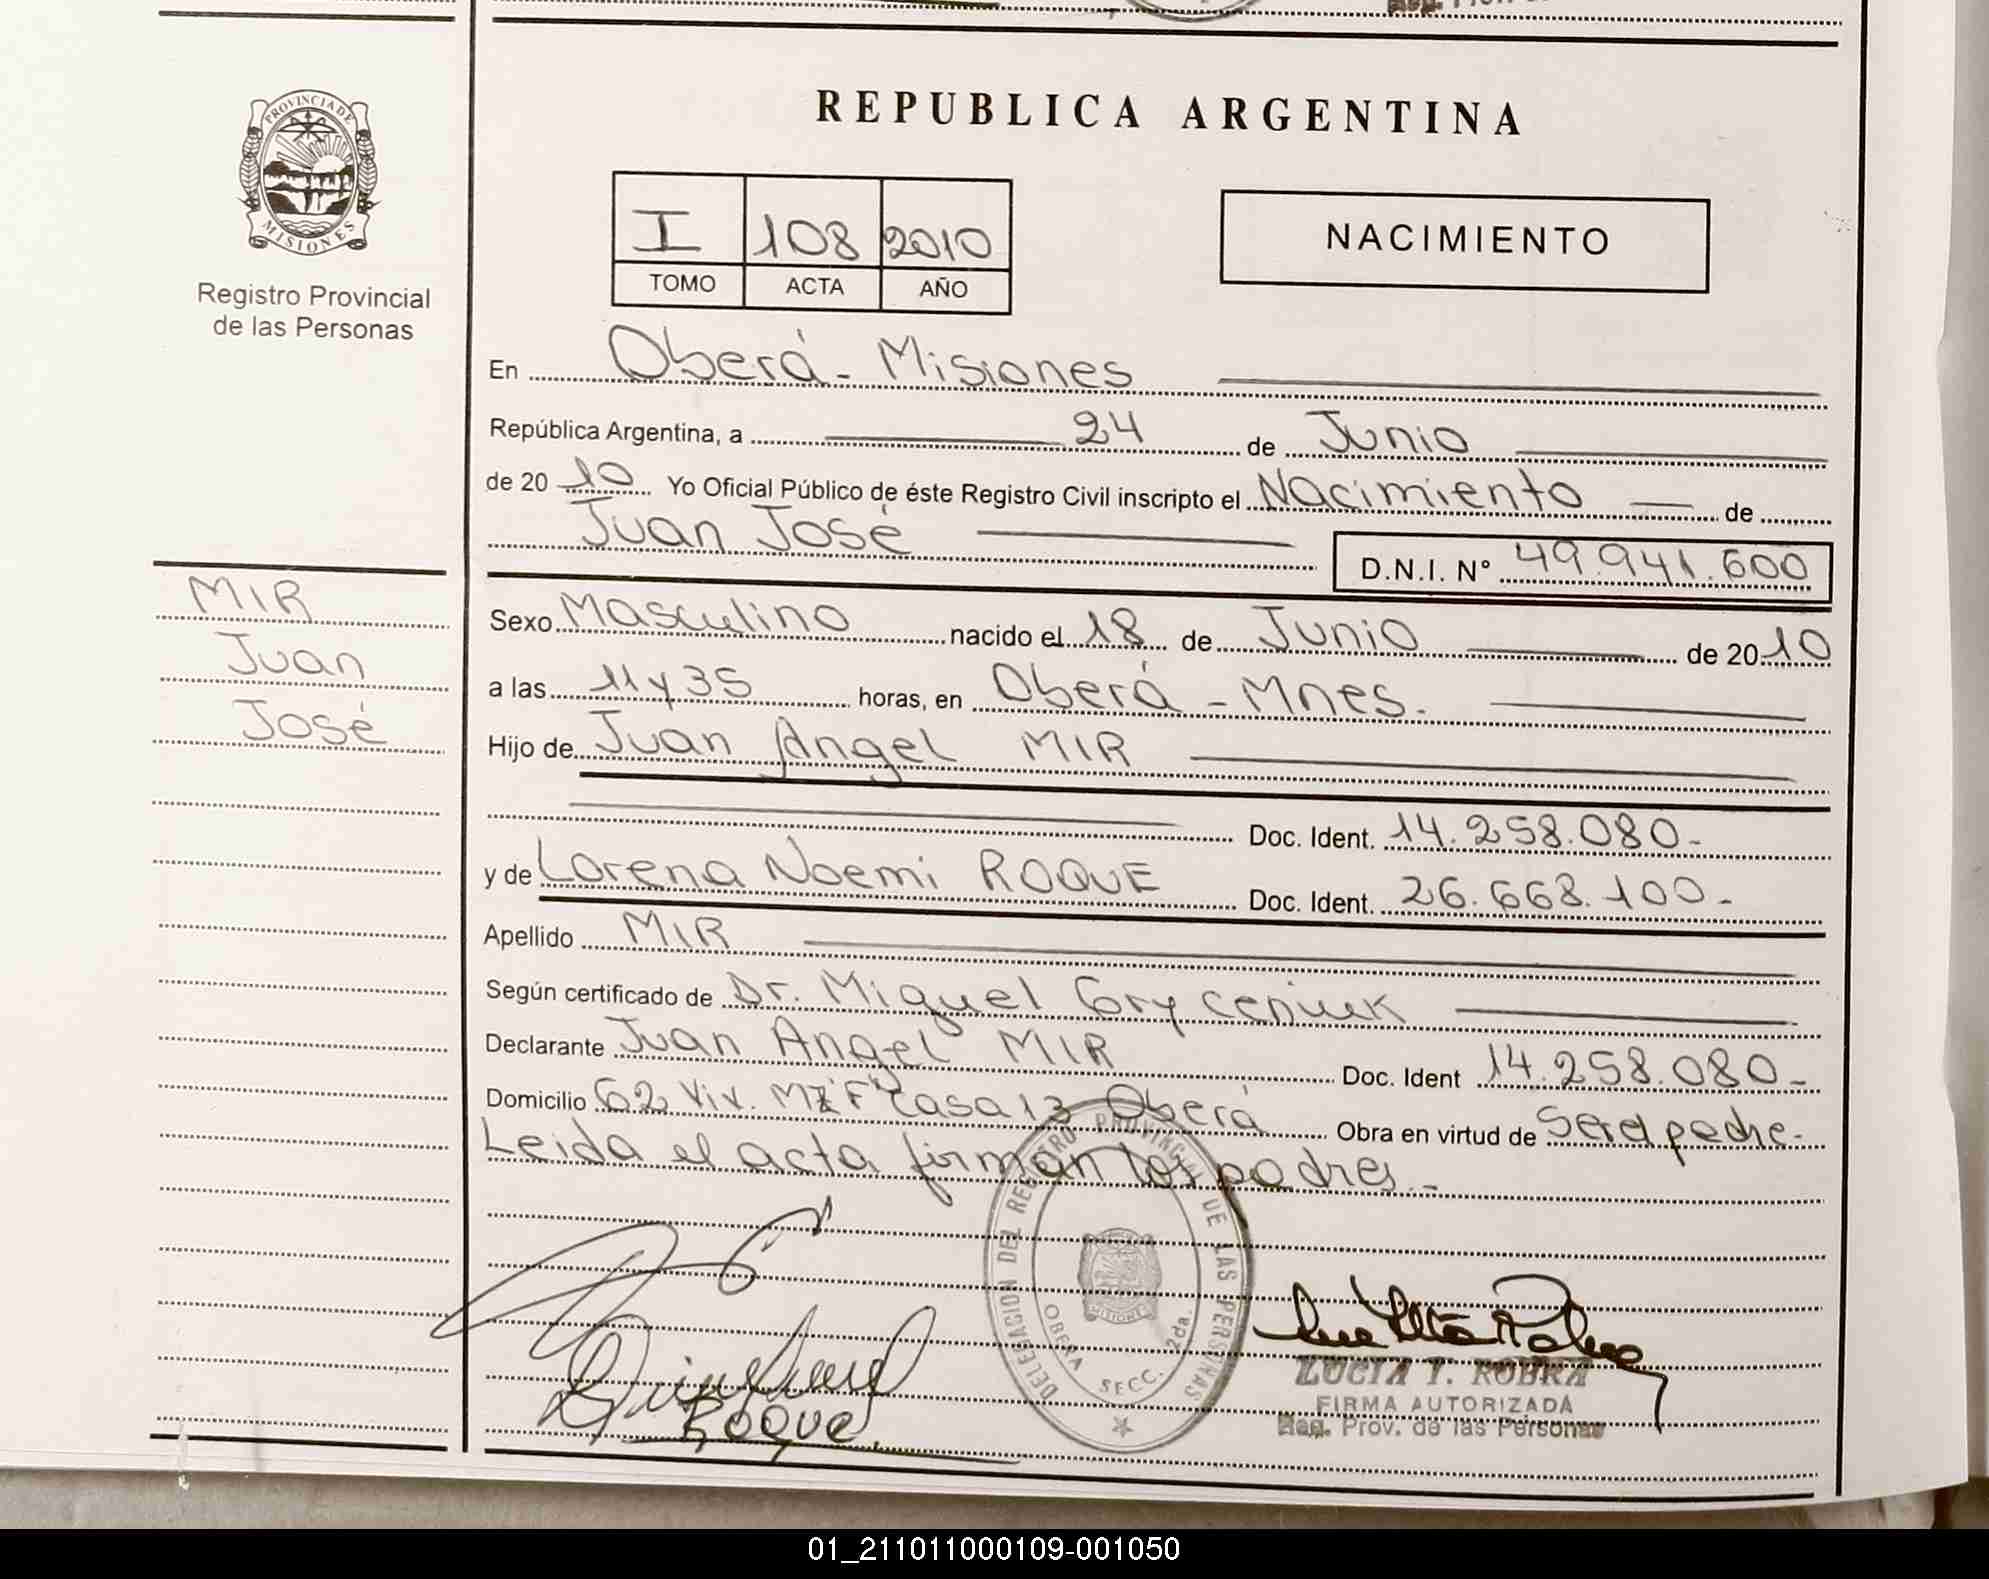 REPUBLICA ARGENTINA
PROVINCIA DE MISIONES
Registro Provincial
de las Personas
I 108 2010
TOMO ACTA AÑO
NACIMIENTO
En Oberá - Misiones
República Argentina, a 24 de Junio
de 2010 Yo Oficial Público de éste Registro Civil inscripto el Nacimiento de
Juan José
D.N.I. N° 49.941.600
MIR
Juan
José
Sexo Masculino nacido el 18 de Junio de 2010
a las 11 y 35 horas, en Oberá - Mnes.
Hijo de Juan Angel MIR
Doc. Ident. 14.258.080-
y de Lorena Noemi ROQUE Doc. Ident. 26.668.100-
Apellido MIR
Según certificado de Dr. Miguel
Declarante Juan Angel MIR Doc. Ident 14.258.080-
Domicilio 62 Viv. MZ "F" casa 13 Oberá Obra en virtud de Ser el padre-
Leida el acta firman los padres.-
DELEGACION DEL REGISTRO PROVINCIAL DE LAS PERSONAS
OBERA SECC. 2da.
MISIONES
Roque
LUCIA T. ROBRA
FIRMA AUTORIZADA
Reg. Prov. de las Personas
01_211011000109-001050